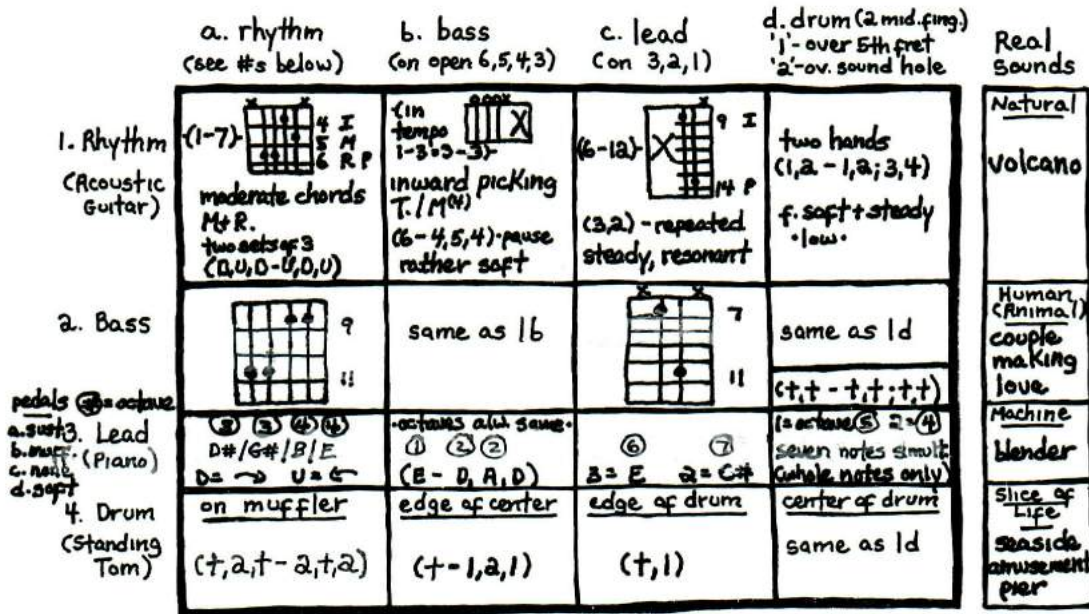 a. rhythm
(see #s below)
b. bass
(on open 6,5,4,3)
c. lead
(on 3,2,1)
d. drum (2 mid. fing.)
'1'-over 5th fret
'2'-ov. sound hole
Real
Sounds
1. Rhythm
(Acoustic
Guitar)
(1-7)
4 I
5 M
6 R P
moderate chords
M+R.
two sets of 3
(D,U,D-U,D,U)
(in
tempo
inward picking
T./M(4)
(6-4,5,4)-pause
rather soft
(6-12)
9 I
14 P
(3,2)-repeated
steady, resonant
two hands
(1,2-1,2;3,4)
f. soft + steady
·low·
Natural
volcano
2. Bass
9
11
same as 1b
7
11
same as 1d
(t,t-t,t;t,t)
Human
(Animal)
couple
making
love
pedals
a. sust
c. none
d. soft
= octave
3. Lead
(Piano)
3 3 4 4
D#/G#/B/E
D= → U= ←
·octaves alw. same·
1 2 2
(E - D, A, D)
6 7
3=E 2=C#
1=octave 5 2=4
seven notes simult.
(whole notes only)
Machine
blender
4. Drum
(Standing
Tom)
on muffler
(t,2,t-2,t,2)
edge of center
(t-1,2,1)
edge of drum
(t,1)
center of drum
same as 1d
Slice of
Life
seaside
amusement
pier